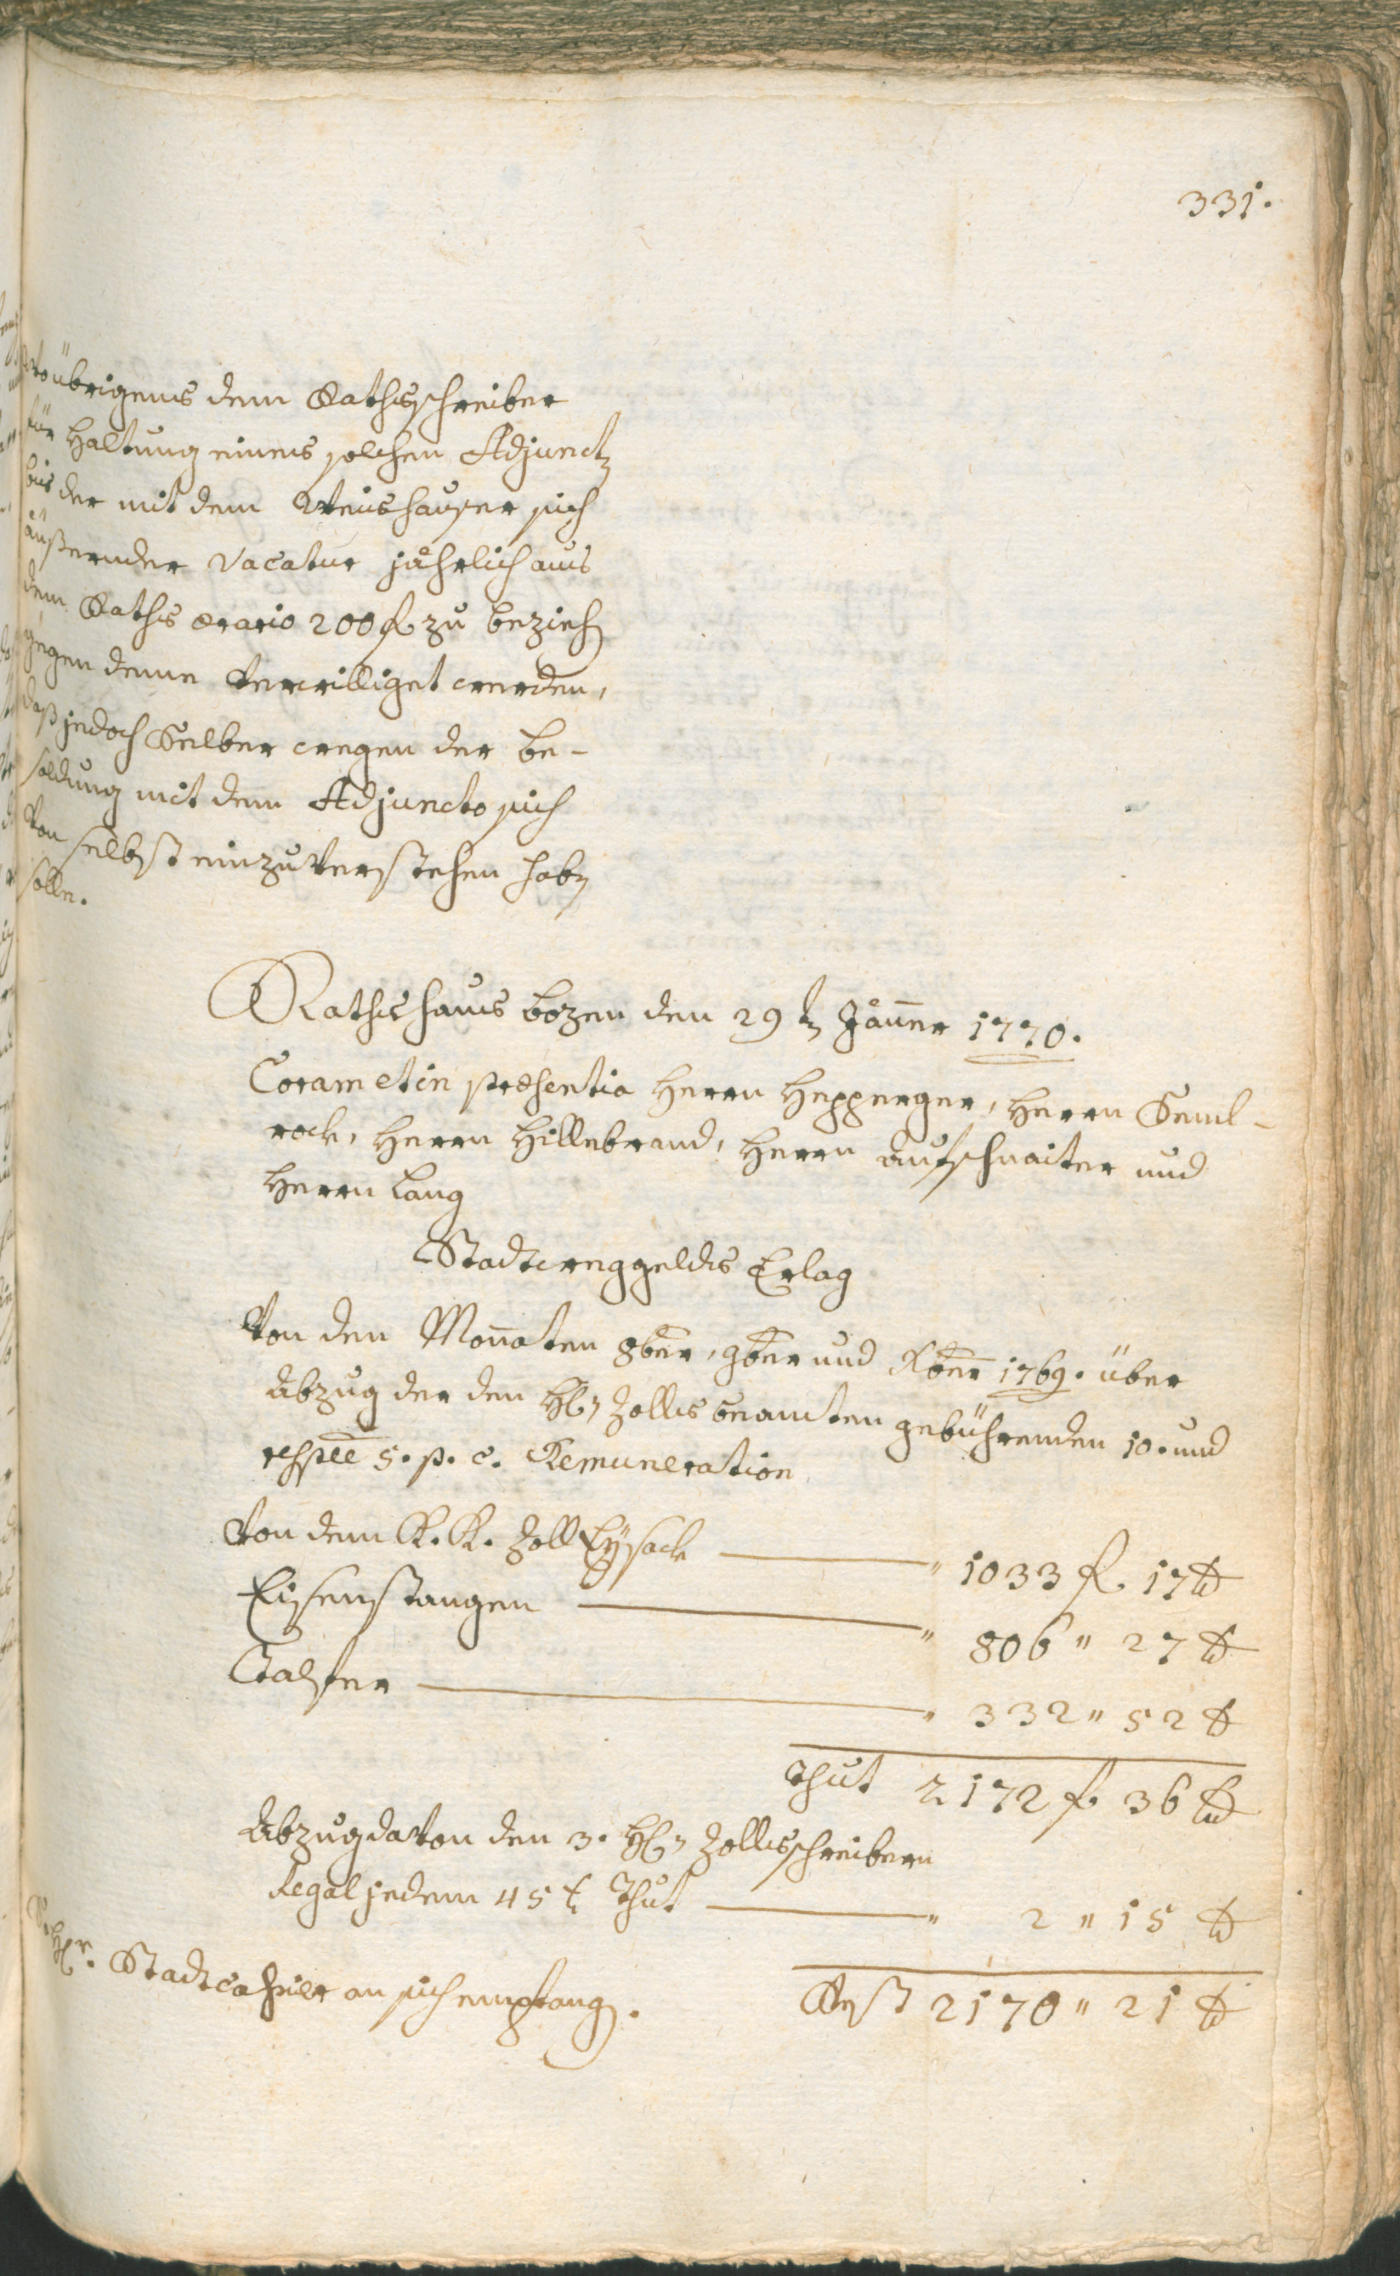 331.
wo übrigens dem Rathsschreiber
für Haltung eines solchen Adjuncts
bis der mit dem Weishauser sich
äußernder Vacatur jährlich aus
dem Raths ærario 200 f. zu bezieh[en]
gegen deme verwilliget werden,
daß jedoch Selber wegen der be-
soldung mit dem Adjuncto sich
von selbst einzuverstehen haben
solle.
Rathshaus bozen den 29ten Jänner 1770.
Coram et in præsentia Herrn Hepperger, Herrn Seml-
rock, Herrn Hillebrand, Herrn Aufschnaiter und
Herrn Lang
Stadtweggelds Erlag
Von den Monaten 8ber, 9ber und Xber 1769. über
Abzug der den H: Zollsbeamten gebührenden 10. und
respve 5. p. c. Remuneration
Von dem K. K. Zoll Eÿsack " 1033 f. 17 xr
Eisenstangen " 806 " 27 xr
Talfer " 332 " 52 xr
Thut 2172 f. 36 xr
Abzug davon den 3. H: Zollsschreibern
Regal jedem 45 xr Thut " 2 " 15 xr
Rest 2170 " 21 xr
Hr. Stadtcassier an sich empfang.